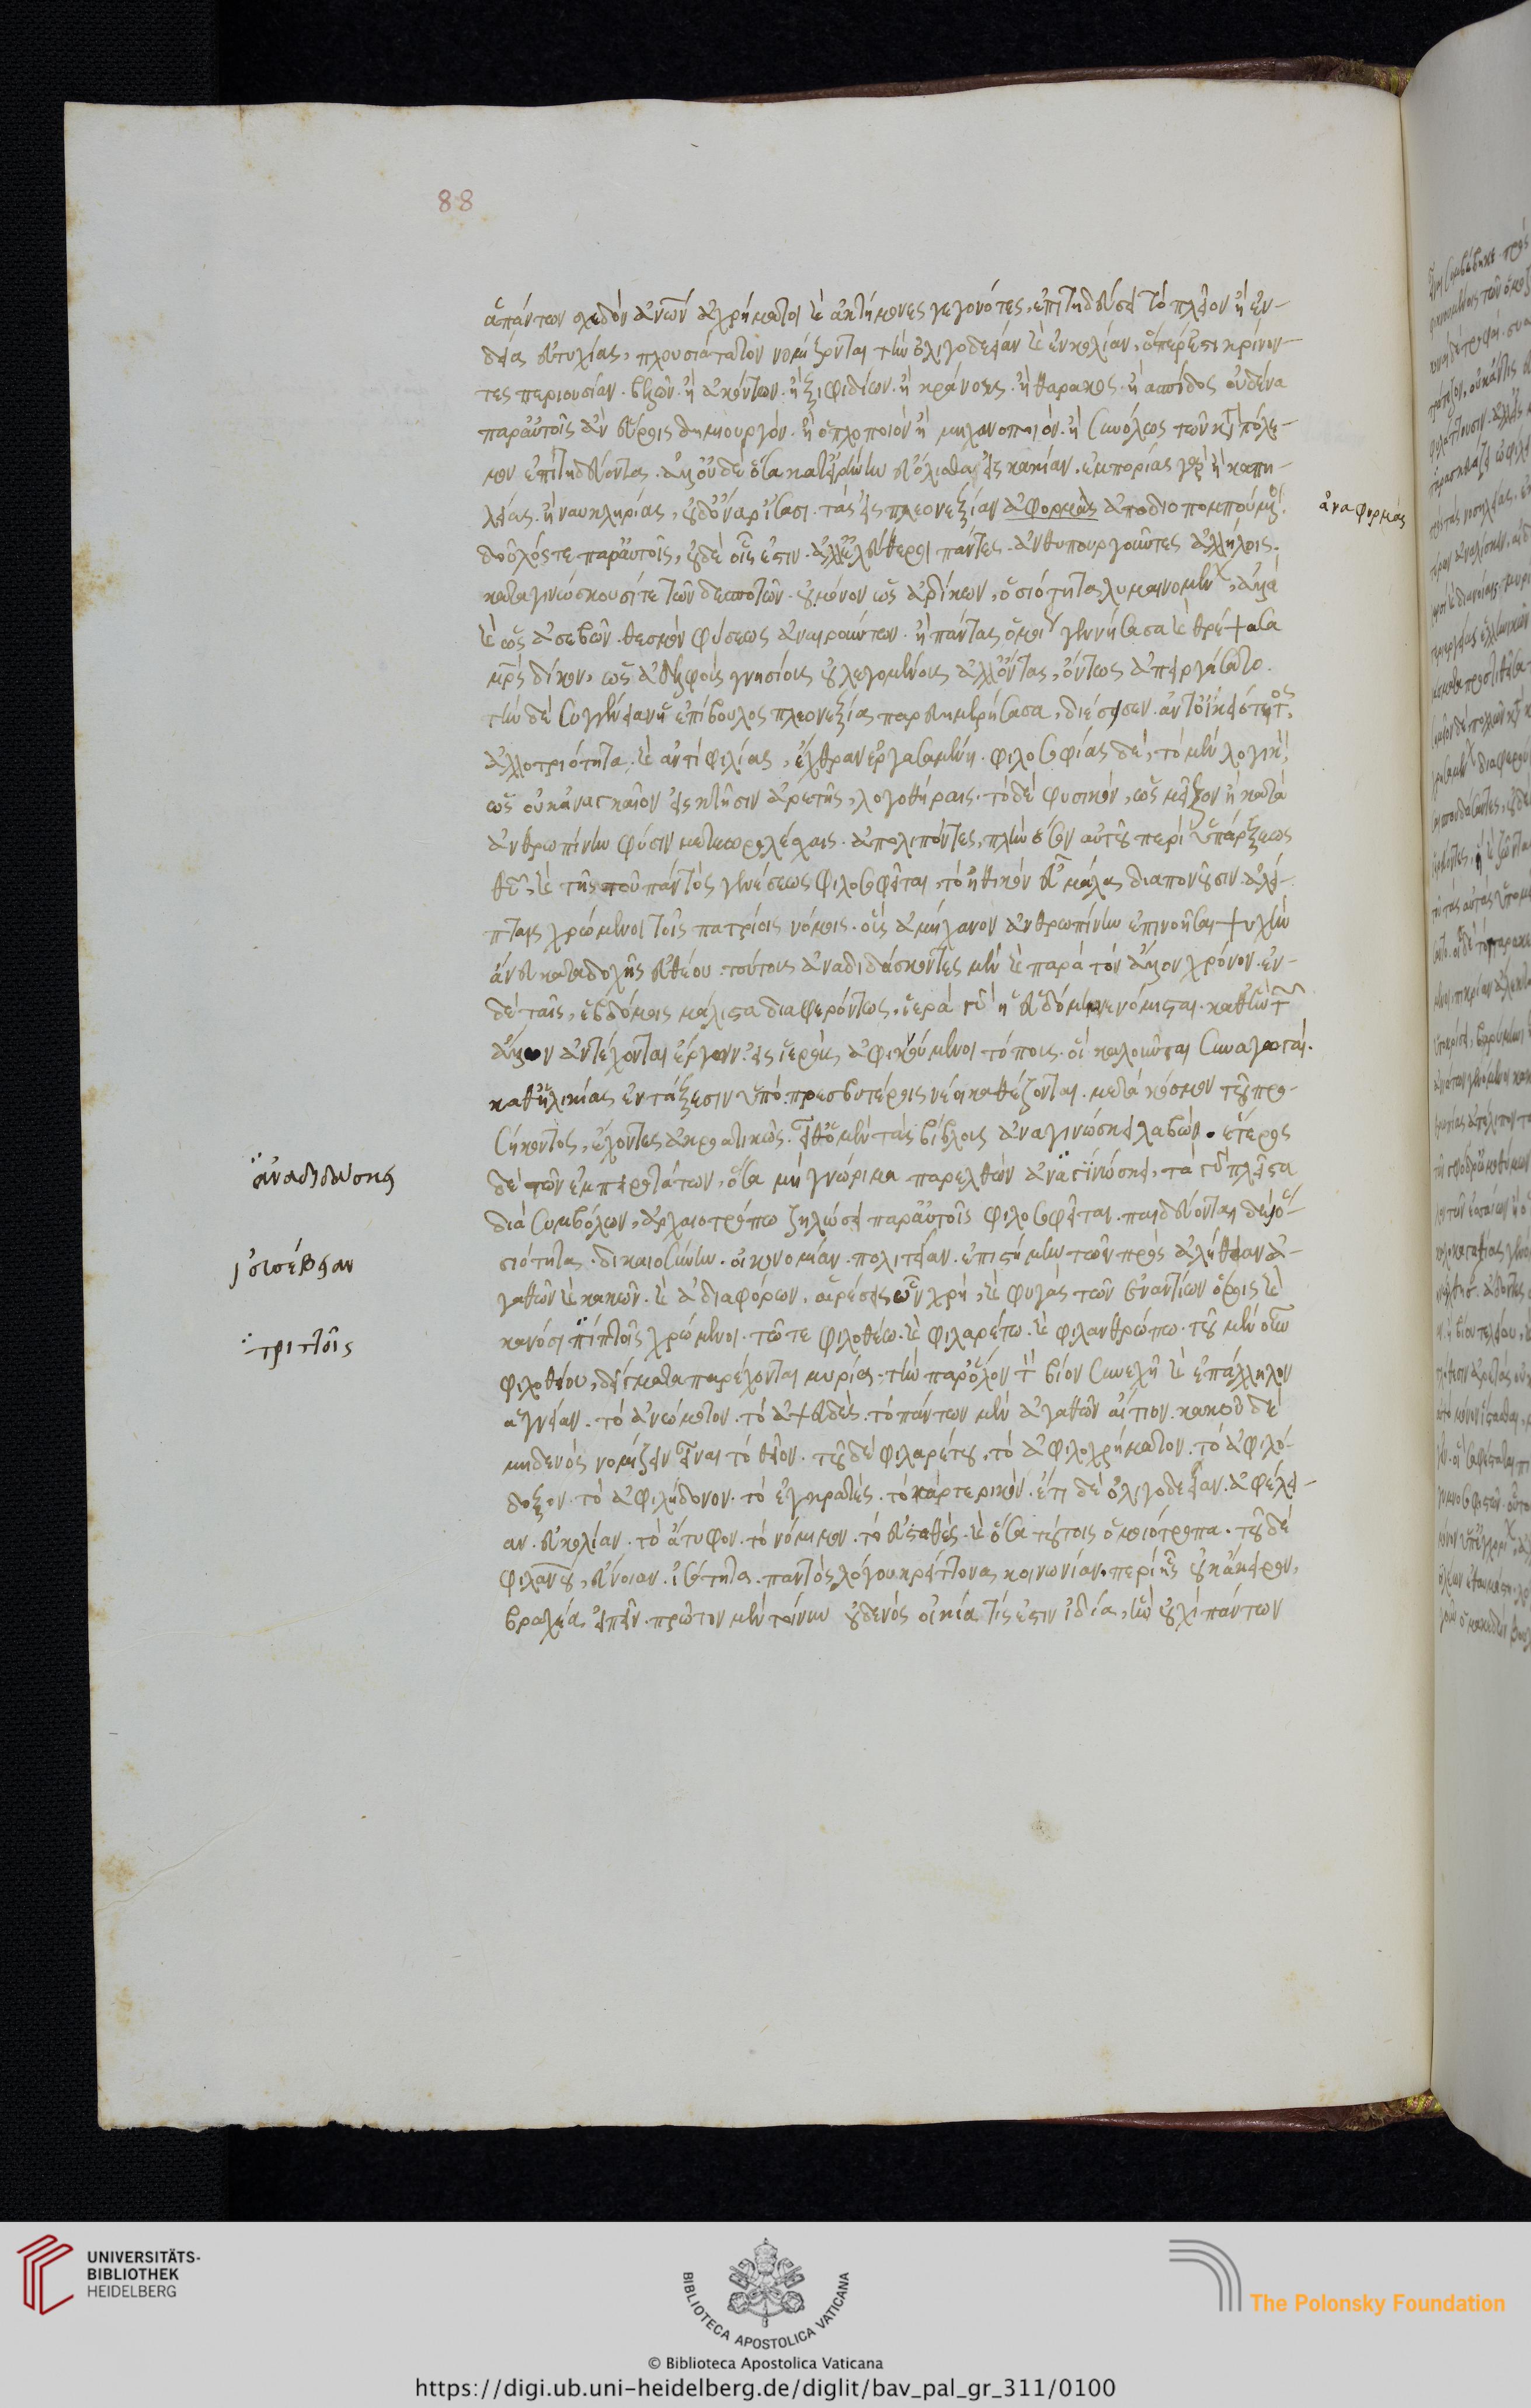 88
ἁπάντων σχεδὸν ἀνων ἀχρήματοι κ ἀκτήμονες γεγονότες, ἐπιτηδεύσει τὸ πλέον ἢ ἐν-
δείᾳ εὐτυχίας, πλουσιώτατοι νομίζονται τὴν ὀλιγοδεΐαν κ εὐκολίαν, ὅπερ ἐστὶ κρίνον-
τες περιουσίαν. βελῶν. ἢ ἀκόντων. ἢ ξιφιδίων. ἢ κράνους. ἢ θώρακος. ἢ ἀσπίδος οὐδένα
παρ' αὐτοῖς ἂν εὕροις δημιουργὸν. ἢ ὁπλοποιὸν ἢ μηχανοποιὸν. ἢ συνόλως τῶν κτ πόλε-
μον ἐπιτηδεύοντα. ἀλλ' οὐδὲ ὅσα κατ' εἰρήνην εὐόλισθα εἰς κακίαν. ἐμπορίας γὰρ ἢ καπη-
λείας. ἢ ναυκληρίας, οὐδ' ὄναρ ἴσασι. τὰς εἰς πλεονεξίαν ἀφορμὰς ἀποδιοπομπούμενοι.
ἀναφορμὰς
δοῦλός τε παρ' αὐτοῖς, οὐδὲ εἷς ἐστιν. ἀλλ' ἐλεύθεροι πάντες. ἀνθυπουργοῦντες ἀλλήλοις.
καταγινώσκουσί τε τῶν δεσποτῶν. οὐ μόνον ὡς ἀδίκων, ὁσιότητα λυμαινομένων, ἀλλὰ
κ ὡς ἀσεβῶν. θεσμὸν φύσεως ἀναιρούντων. ἢ πάντας ὁμοίως γεννήσασα κ θρέψασα
μρς δίκην, ὡς ἀδελφοὺς γνησίους οὐ λεγομένους ἀλλ' ὄντας, ὄντως ἀπειργάσατο.
τὴν δὲ συγγένειαν ἡ ἐπίβουλος πλεονεξία παρευημερήσασα, διέσεισεν. ἀντ' οἰκειότητος,
ἀλλοτριότητα. κ ἀντὶ φιλίας, ἔχθραν ἐργασαμένη. φιλοσοφίας δὲ, τὸ μὲν λογικὸν
ὡς οὐκ ἀναγκαῖον εἰς κτῆσιν ἀρετῆς, λογοθήραις. τὸ δὲ φυσικὸν, ὡς μεῖζον ἢ κατὰ
ἀνθρωπίνην φύσιν μετεωρολέσχαις. ἀπολιπόντες, πλὴν ὅσον αὐτοῦ περὶ ὑπάρξεως
θῦ, κ τῆς τοῦ παντὸς γενέσεως φιλοσοφεῖται, τὸ ἠθικὸν εὖ μάλα διαπονοῦσιν. ἀλεί-
πταις χρώμενοι τοῖς πατρίοις νόμοις. οὓς ἀμήχανον ἀνθρωπίνην ἐπινοῆσαι ψυχὴν
ἄνευ κατακωχῆς ἐνθέου. τούτοις ἀναδιδάσκοντες μὲν κ παρὰ τὸν ἄλλον χρόνον. ἐν-
δὲ ταῖς, ἑβδόμαις μάλιστα διαφερόντως. ἱερὰ γὰρ ἡ ἑβδόμη νενόμισται. καθ' ἣν τῶν
ἄλλων ἀνέχονται ἔργων. εἰς ἱεροὺς ἀφικνούμενοι τόπους. οἳ καλοῦνται συναγωγαί.
καθ' ἡλικίας ἐν τάξεσιν ὑπὸ πρεσβυτέροις νέοι καθέζονται. μετὰ κόσμου τοῦ προ-
σήκοντος, ἔχοντες ἀκροατικῶς. εἶθ' ὁ μὲν τὰς βίβλους ἀναγινώσκει λαβών. ἕτερος
ἀναδιδάσκει
δὲ τῶν ἐμπειροτάτων, ὅσα μὴ γνώριμα παρελθὼν ἀναγινώσκει, τὰ γὰρ πλεῖστα
διὰ συμβόλων, ἀρχαιοτρόπῳ ζηλώσει παρ' αὐτοῖς φιλοσοφεῖται. παιδεύονται δὲ, ὁ-
σιότητα. δικαιοσύνην. οἰκονομίαν. πολιτείαν. ἐπιστήμην τῶν πρὸς ἀλήθειαν ἀ-
εὐσέβειαν
γαθῶν κ κακῶν. κ ἀδιαφόρων. αἱρέσεις ὧν χρὴ, κ φυγὰς τῶν ἐναντίων ὅροις κ
κανόσι πίπτοῖς χρώμενοι. τῶ τε φιλοθέω. κ φιλαρέτω. κ φιλανθρώπω. τοῦ μὲν οὖν
τριττοῖς
φιλοθέου, δείγματα παρέχονται μυρία. τὴν παρ' ὅλον τὸν βίον συνεχῆ κ ἐπάλληλον
ἁγνείαν. τὸ ἀνώμοτον. τὸ ἀψευδὲς. τὸ πάντων μὲν ἀγαθῶν αἴτιον. κακοῦ δὲ
μηδενὸς νομίζειν εἶναι τὸ θεῖον. τοῦ δὲ φιλαρέτου, τὸ ἀφιλοχρήματον. τὸ ἀφιλό-
δοξον. τὸ ἀφιλήδονον. τὸ ἐγκρατὲς. τὸ καρτερικὸν. ἔτι δὲ ὀλιγοδεΐαν. ἀφέλει-
αν. εὐκολίαν. τὸ ἄτυφον. τὸ νόμιμον. τὸ εὐσταθὲς. κ ὅσα τούτοις ὁμοιότροπα. τοῦ δὲ
φιλανου, εὔνοιαν. ἰσότητα. παντὸς λόγου κρείττονα κοινωνίαν. περὶ ἧς οὐκ ἄκαιρον,
βραχέα εἰπεῖν. πρῶτον μὲν τοίνυν οὐδενὸς οἰκία τίς ἐστιν ἰδία, ἣν οὐχὶ πάντων
UNIVERSITÄTS-
BIBLIOTHEK
HEIDELBERG
BIBLIOTECA APOSTOLICA VATICANA
The Polonsky Foundation
© Biblioteca Apostolica Vaticana
https://digi.ub.uni-heidelberg.de/diglit/bav_pal_gr_311/0100